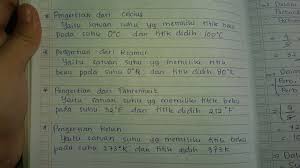 Pengertian dari Celcius
Yaitu satuan suhu yg memiliki titik beku
pada suhu 0°C dan titik didih 100°C
Pengertian dari Reamur
Yaitu satuan suhu yg memiliki titik
beku pada suhu 0°R dan titik didih 80°R
Pengertian dari Fahrenheit
Yaitu satuan suhu yg memiliki titik beku
pada suhu 32°F dan titik didih 212°F
Pengertian Kelvin
Yaitu satuan suhu yg memiliki titik beku
suhu 273°K dan titik didih 373°K